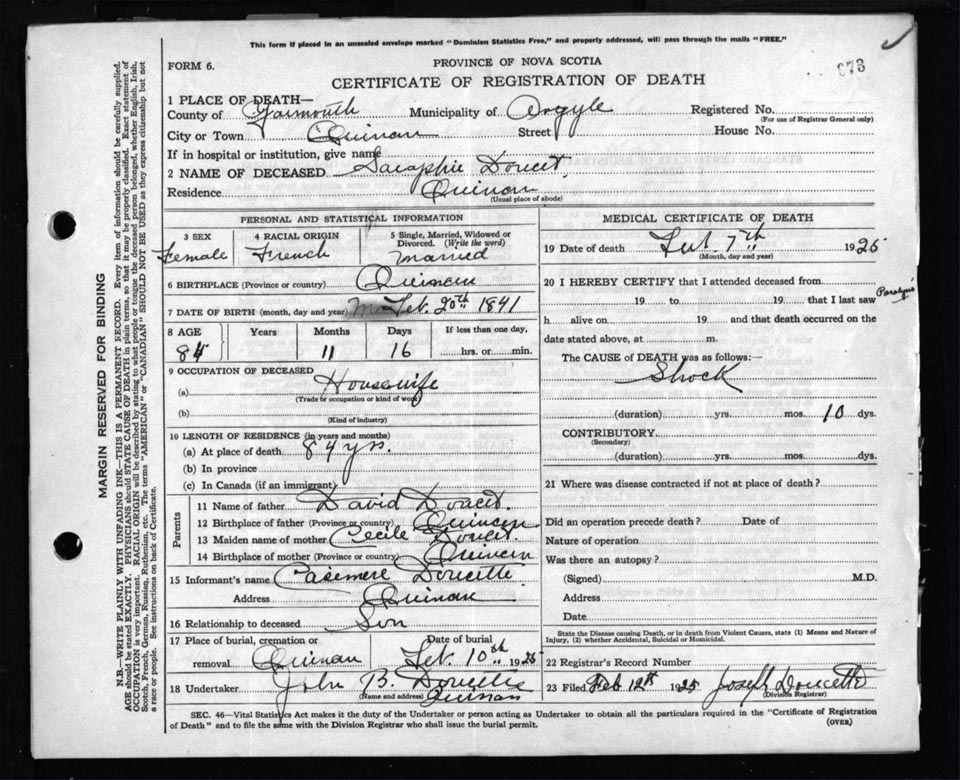 This form if placed in an unsealed envelope marked "Dominion Statistics Free," and properly addressed, will pass through the mails "FREE."
FORM 6.
PROVINCE OF NOVA SCOTIA
073
CERTIFICATE OF REGISTRATION OF DEATH
1 PLACE OF DEATH—
County of Yarmouth Municipality of Argyle Registered No.
(For use of Registrar General only)
City or Town Quinan Street House No.
If in hospital or institution, give name
2 NAME OF DECEASED Saraphie Doucet.
Residence Quinan
(Usual place of abode)
PERSONAL AND STATISTICAL INFORMATION
3 SEX 4 RACIAL ORIGIN 5 Single, Married, Widowed or Divorced. (Write the word)
Female French Married
6 BIRTHPLACE (Province or country) Quinan
7 DATE OF BIRTH (month, day and year) Feb. 20th 1841
8 AGE Years Months Days If less than one day,
84 11 16 hrs. or min.
9 OCCUPATION OF DECEASED
(a) Housewife
(Trade or occupation or kind of work)
(b)
(Kind of industry)
10 LENGTH OF RESIDENCE (in years and months)
(a) At place of death 84 yrs.
(b) In province
(c) In Canada (if an immigrant)
Parents
11 Name of father David Doucet.
12 Birthplace of father (Province or country) Quinan
13 Maiden name of mother Cecile Doucet.
14 Birthplace of mother (Province or country) Quinan
15 Informant's name Casemere Doucette
Address Quinan
16 Relationship to deceased Son
17 Place of burial, cremation or removal Quinan Date of burial Feb. 10th 1925
18 Undertaker John B. Doucette
(Name and address) Quinan
MEDICAL CERTIFICATE OF DEATH
19 Date of death 7th 1925
(Month, day and year)
20 I HEREBY CERTIFY that I attended deceased from
19 to 19 that I last saw
Paralysis
h alive on 19 and that death occurred on the
date stated above, at m.
The CAUSE of DEATH was as follows:—
Shock
(duration) yrs. mos. 10 dys.
CONTRIBUTORY
(Secondary)
(duration) yrs. mos. dys.
21 Where was disease contracted if not at place of death?
Did an operation precede death? Date of
Nature of operation
Was there an autopsy?
(Signed) M.D.
Address
Date
State the Disease causing Death, or in death from Violent Causes, state (1) Means and Nature of Injury, (2) whether Accidental, Suicidal or Homicidal.
22 Registrar's Record Number
23 Filed Feb 12th 1925 Joseph Doucette
(Division Registrar)
SEC. 46—Vital Statistics Act makes it the duty of the Undertaker or person acting as Undertaker to obtain all the particulars required in the "Certificate of Registration
of Death" and to file the same with the Division Registrar who shall issue the burial permit.
(OVER)
MARGIN RESERVED FOR BINDING
N.B.—WRITE PLAINLY WITH UNFADING INK—THIS IS A PERMANENT RECORD. Every item of information should be carefully supplied.
AGE should be stated EXACTLY. PHYSICIANS should STATE CAUSE OF DEATH in plain terms, so that it may be properly classified. Exact statement of
OCCUPATION is very important. RACIAL ORIGIN will be described by stating to what people or tongue the deceased person belonged, whether English, Irish,
Scotch, French, German, Russian, Ruthenian, etc. The terms "AMERICAN" or "CANADIAN" SHOULD NOT BE USED as they express citizenship but not
a race or people. See instructions on back of Certificate.